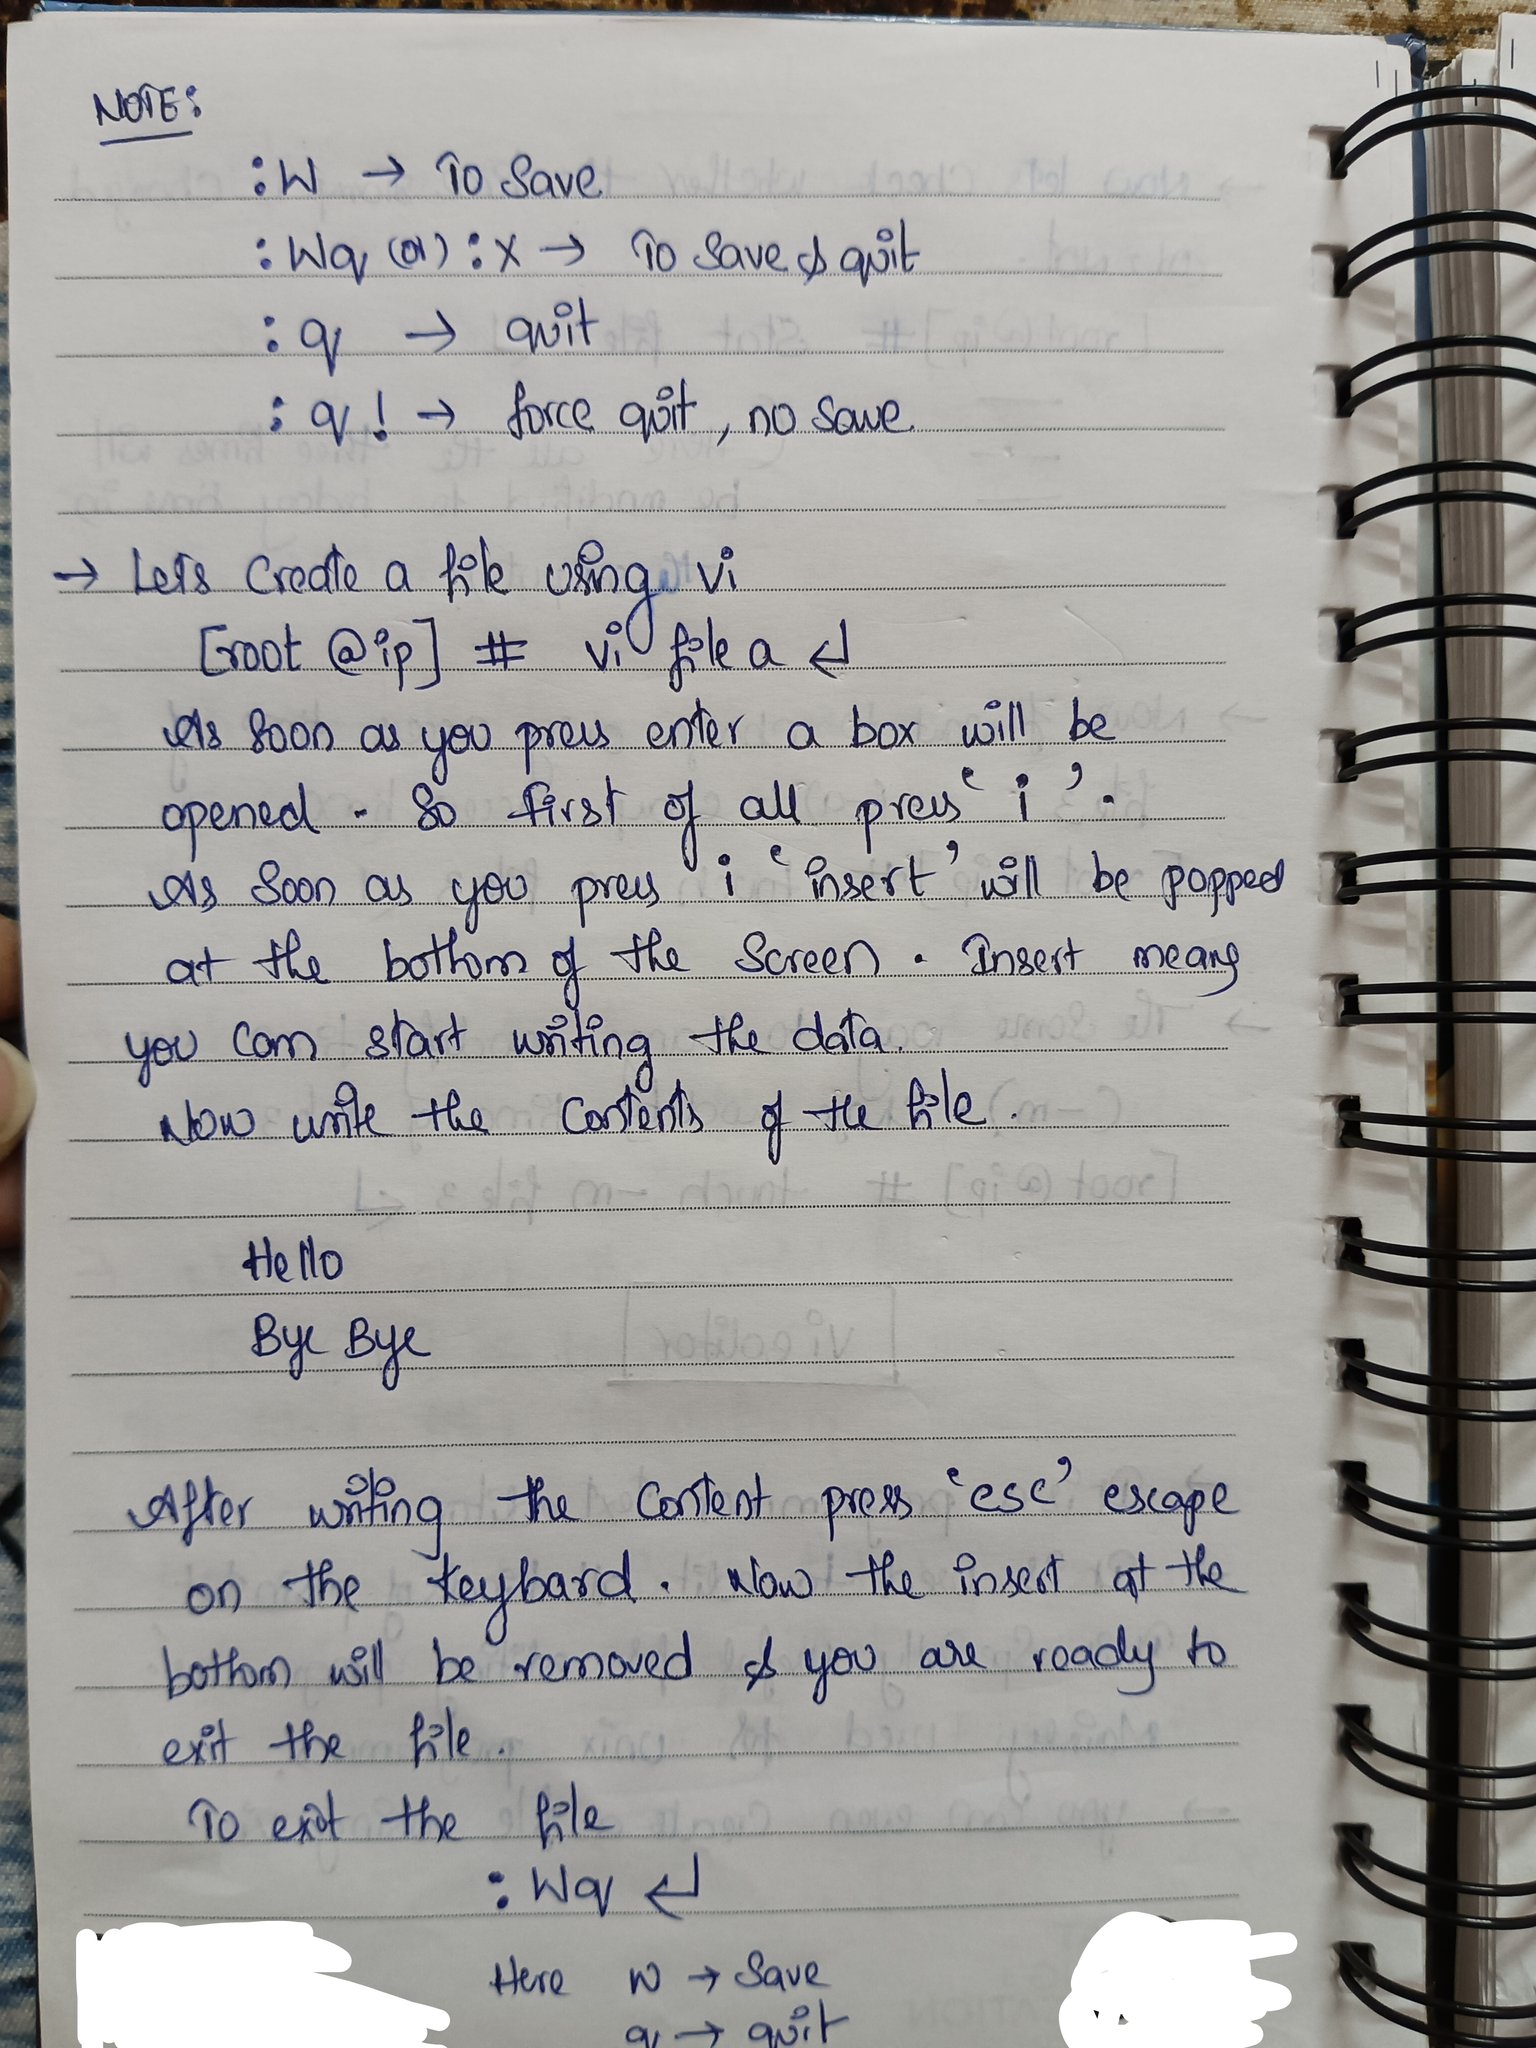 NOTE:
:W → To Save
:Wq (or) :x → To Save & quit
:q → quit
:q! → force quit, no save
→ Lets Create a file using vi
[root @ip] # vi file a ↵
As Soon as you press enter a box will be
opened . So first of all press 'i'.
As Soon as you press i 'insert' will be popped
at the bottom of the Screen . Insert means
you can start writing the data.
Now write the Contents of the file .
Hello
Bye Bye
After writing the Content press 'esc' escape
on the keybard . Now the insert at the
bottom will be removed & you are ready to
exit the file .
To exit the file
:Wq ↵
Here w → Save
q → quit